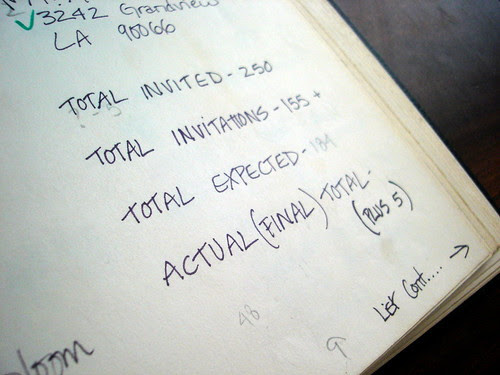 ✓3242 Grandview
LA 90066
TOTAL INVITED - 250
TOTAL INVITATIONS - 155 +
TOTAL EXPECTED - 184
ACTUAL (FINAL) TOTAL -
(PLUS 5)
48
List Cont.... →